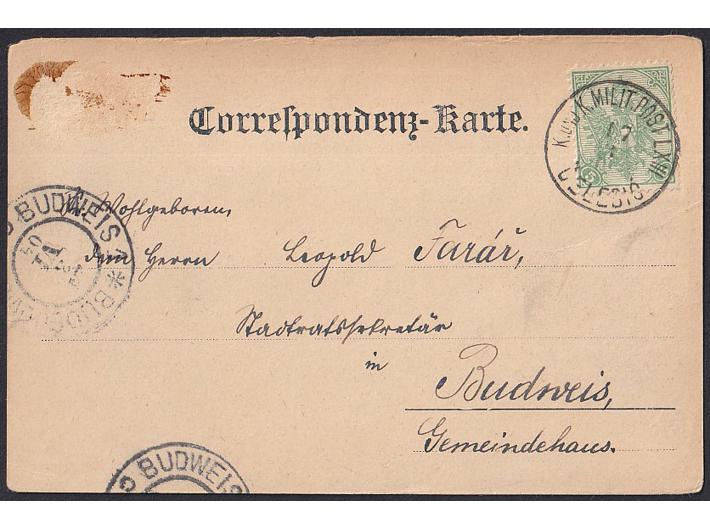 Correspondenz-Karte.
K.und K. MILIT. POST LXIII
ČELEBIĆ
5
Sr. Wohlgeboren,
dem Herrn Leopold Farář,
Stadtratssekretär
in
Budweis,
Gemeindehaus.
BUDWEIS 1
BUDWEIS